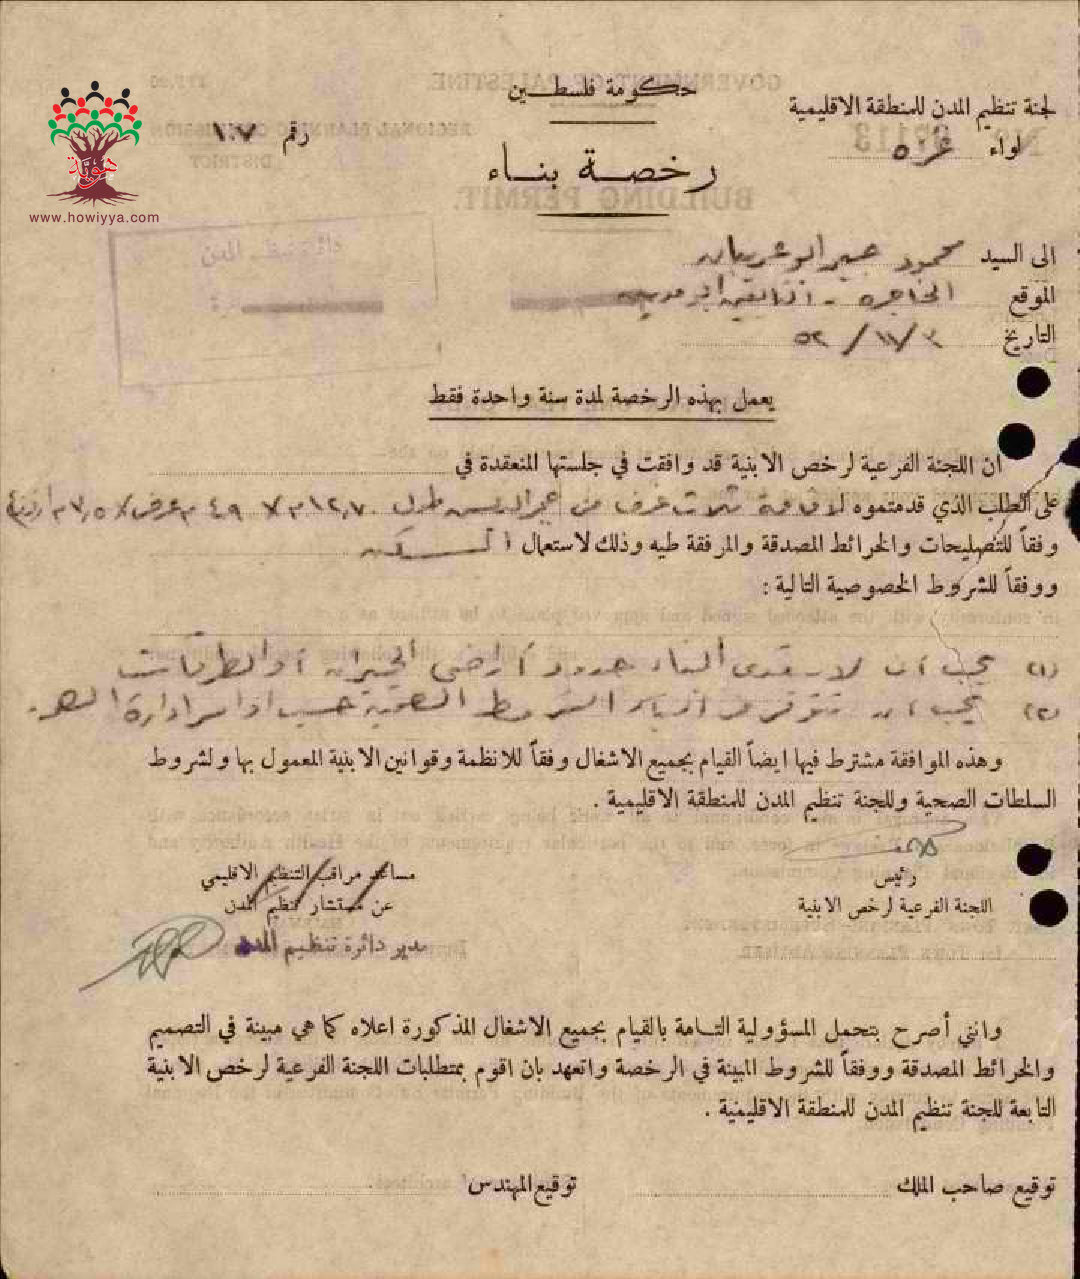 حكومة فلسطين
لجنة تنظيم المدن للمنطقة الاقليمية
لواء غزه
رقم ١٠٧
رخصة بناء
هوية
www.howiyya.com
دائرة تنظيم المدن
الى السيد محمود
الموقع
التاريخ ٣ / ١١ / ٥٢
يعمل بهذه الرخصة لمدة سنة واحدة فقط
ان اللجنة الفرعية لرخص الابنية قد وافقت في جلستها المنعقدة في
على الطلب الذي قدمتموه لاقامة ثلاث غرف من
وفقاً للتصليحات والخرائط المصدقة والمرفقة طيه وذلك لاستعمال السكن
ووفقاً للشروط الخصوصية التالية :
(١) يجب ان لا يتعدى البناء حدود اراضي الجيران او الطرقات
(٢) يجب ان تتوفر في البناء الشروط الصحية حسب اوامر ادارة الصحه
وهذه الموافقة مشترط فيها ايضاً القيام بجميع الاشغال وفقاً للانظمة وقوانين الابنية المعمول بها ولشروط
السلطات الصحية وللجنة تنظيم المدن للمنطقة الاقليمية .
رئيس
اللجنة الفرعية لرخص الابنية
مساعد مراقب التنظيم الاقليمي
عن مستشار تنظيم المدن
مدير دائرة تنظيم المدن
وانني أصرح بتحمل المسؤولية التامة بالقيام بجميع الاشغال المذكورة اعلاه كما هي مبينة في التصميم
والخرائط المصدقة ووفقاً للشروط المبينة في الرخصة واتعهد بان اقوم بمتطلبات اللجنة الفرعية لرخص الابنية
التابعة للجنة تنظيم المدن للمنطقة الاقليمية .
توقيع صاحب الملك
توقيع المهندس